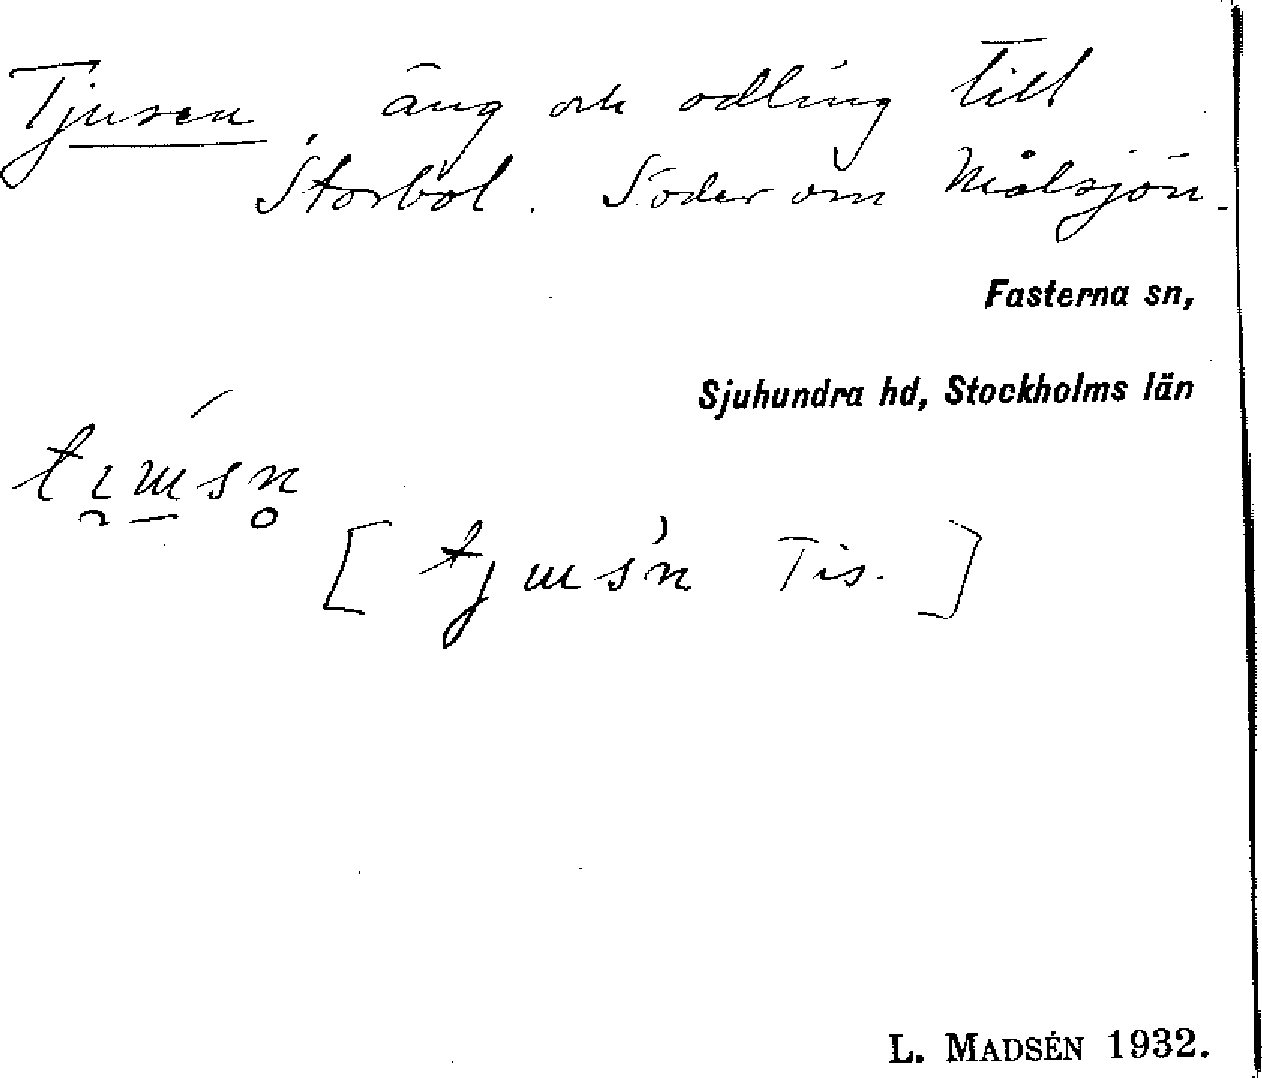 Tjusen, äng och odling till
Storböl. Söder om Målsjön.
Fasterna sn,
Sjuhundra hd, Stockholms län
[ Tis. ]
L. MADSÉN 1932.